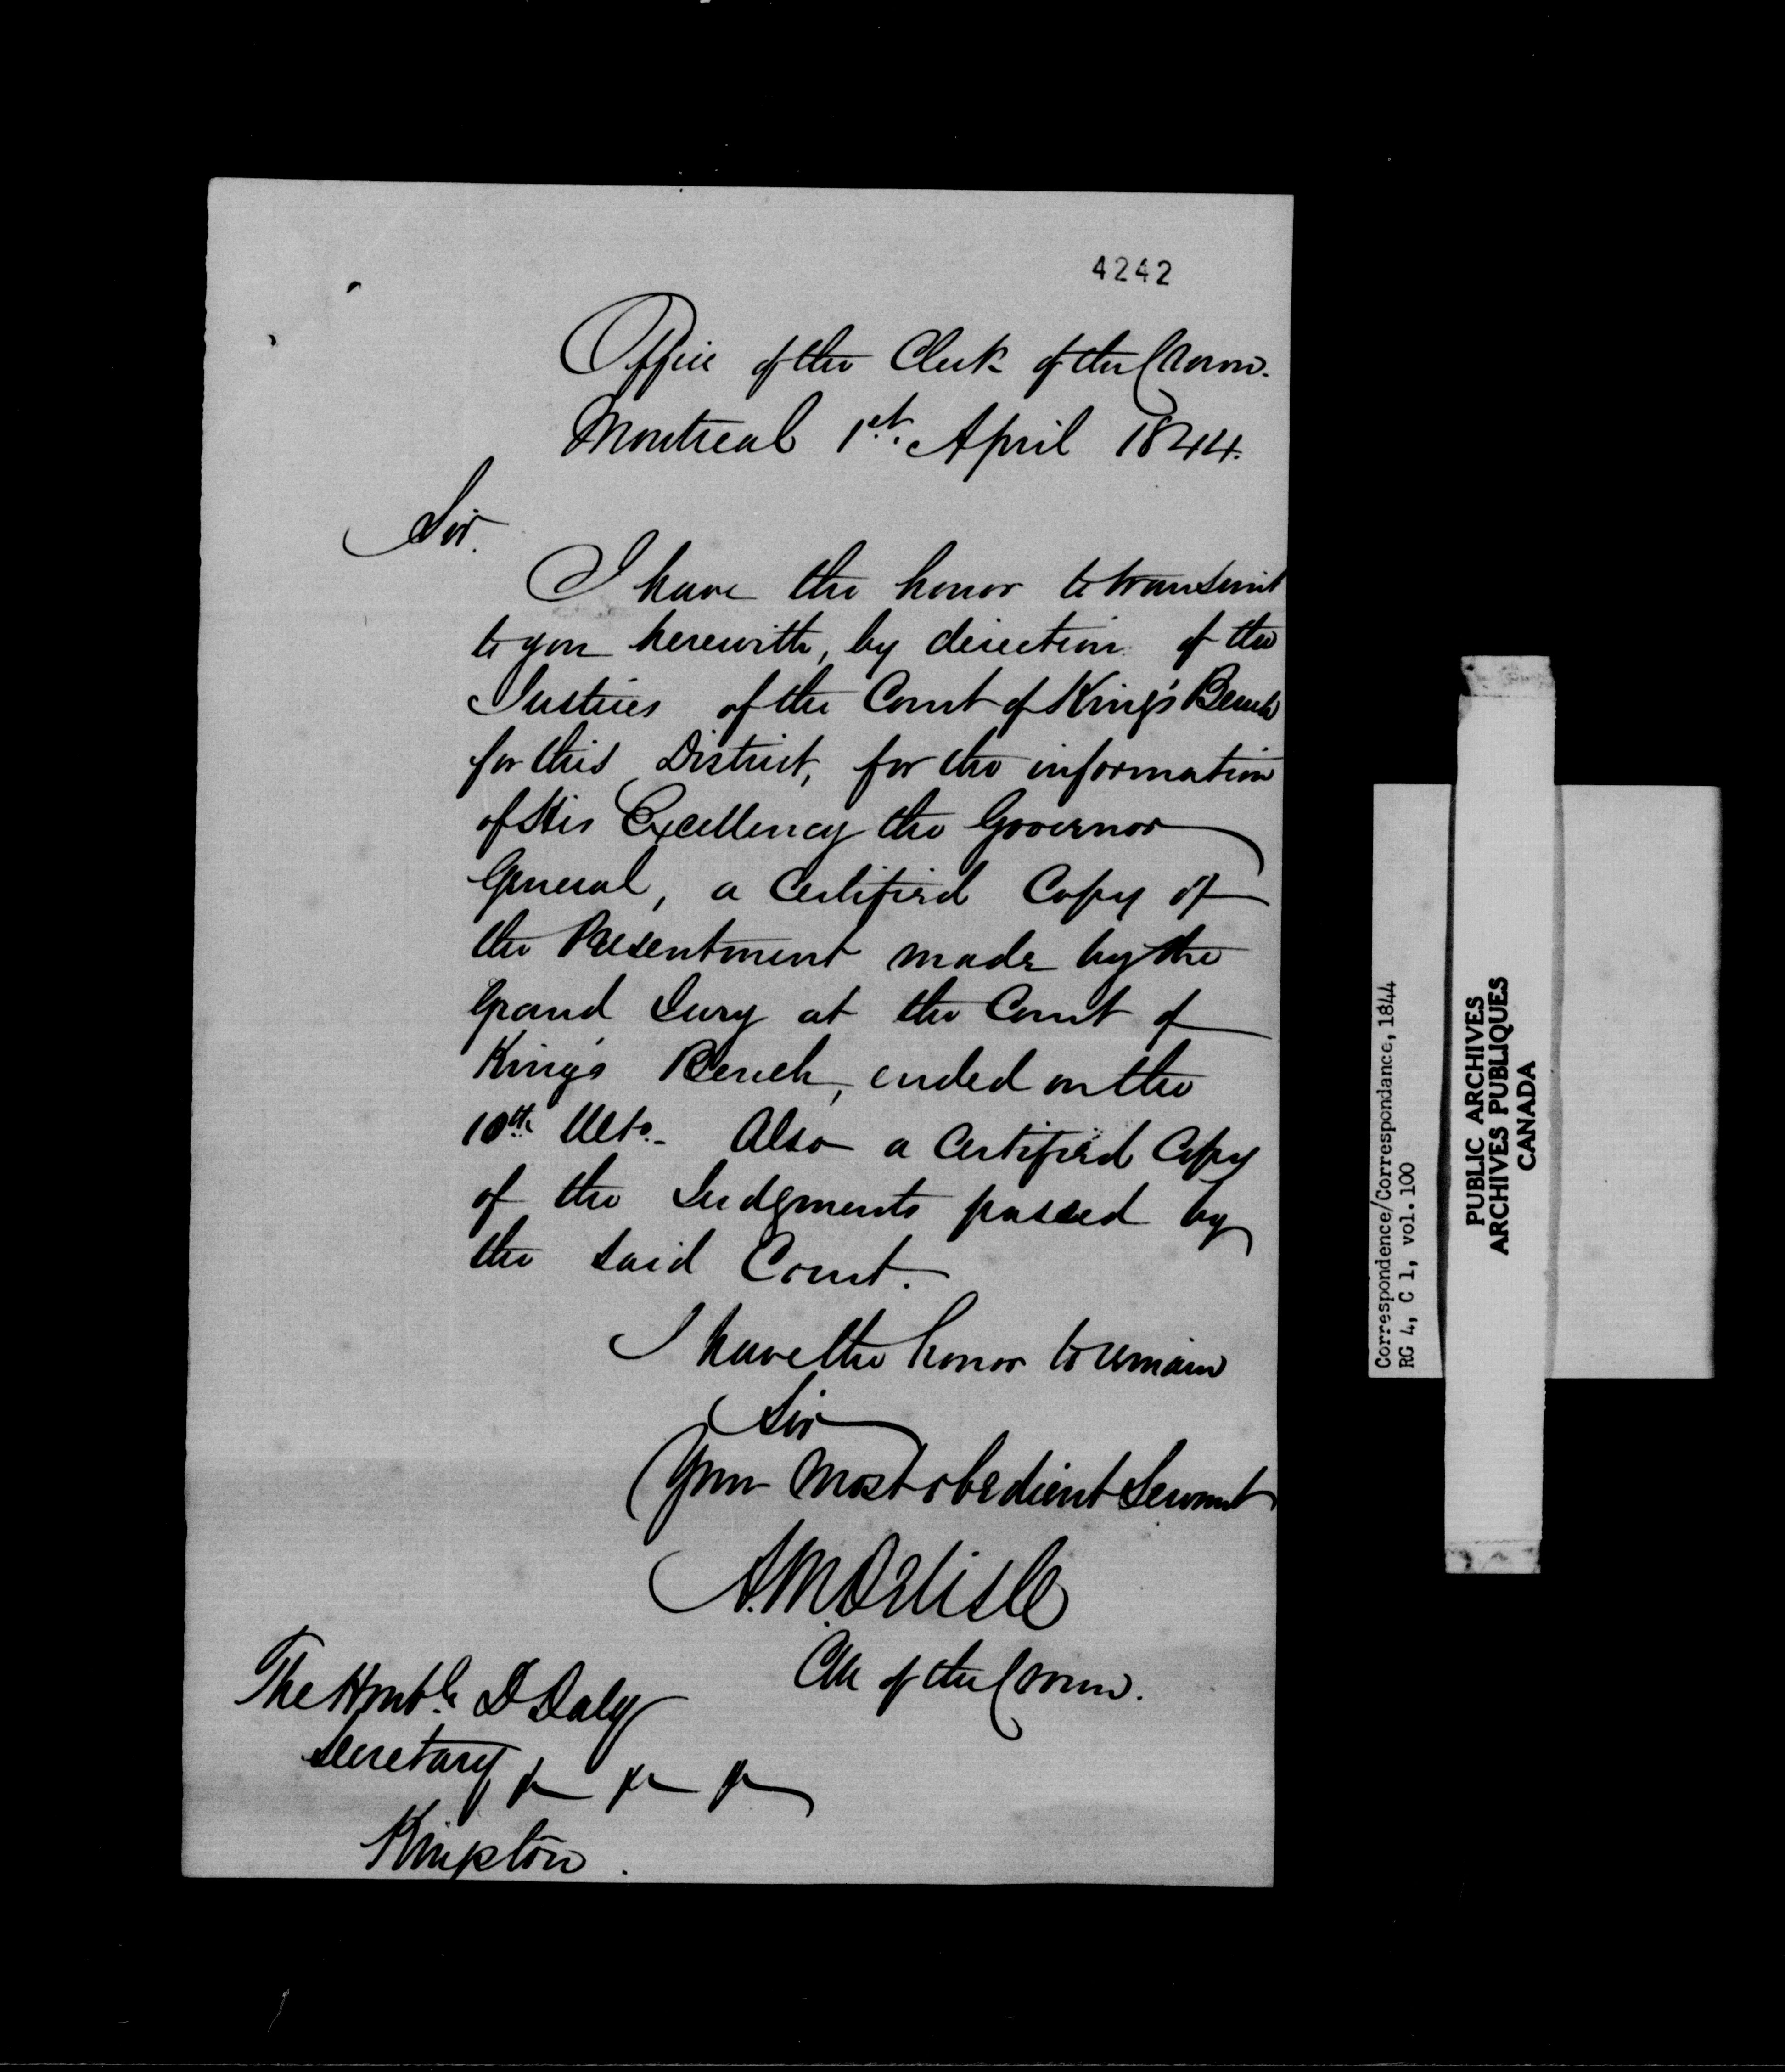 4242
Office of the Clerk of the Crown.
Montreal 1st. April 1844.
Sir.
I have the honor to transmit
to you herewith, by direction of the
Justices of the Court of King's Bench
for this District, for the information
of His Excellency the Governor
General, a Certified Copy of
the Presentment made by the
Grand Jury at the Court of
King's Bench, ended on the
10th Ulto. Also a Certified Copy
of the Judgments passed by
the said Court.
I have the honor to remain
Sir
Your Most obedient Servant
A.M. Delisle
Clk of the Crown.
The Honble. D Daly
Secretary &c &c &c
Kingston.
Correspondence/Correspondance, 1844
RG 4, C 1, vol. 100
PUBLIC ARCHIVES
ARCHIVES PUBLIQUES
CANADA